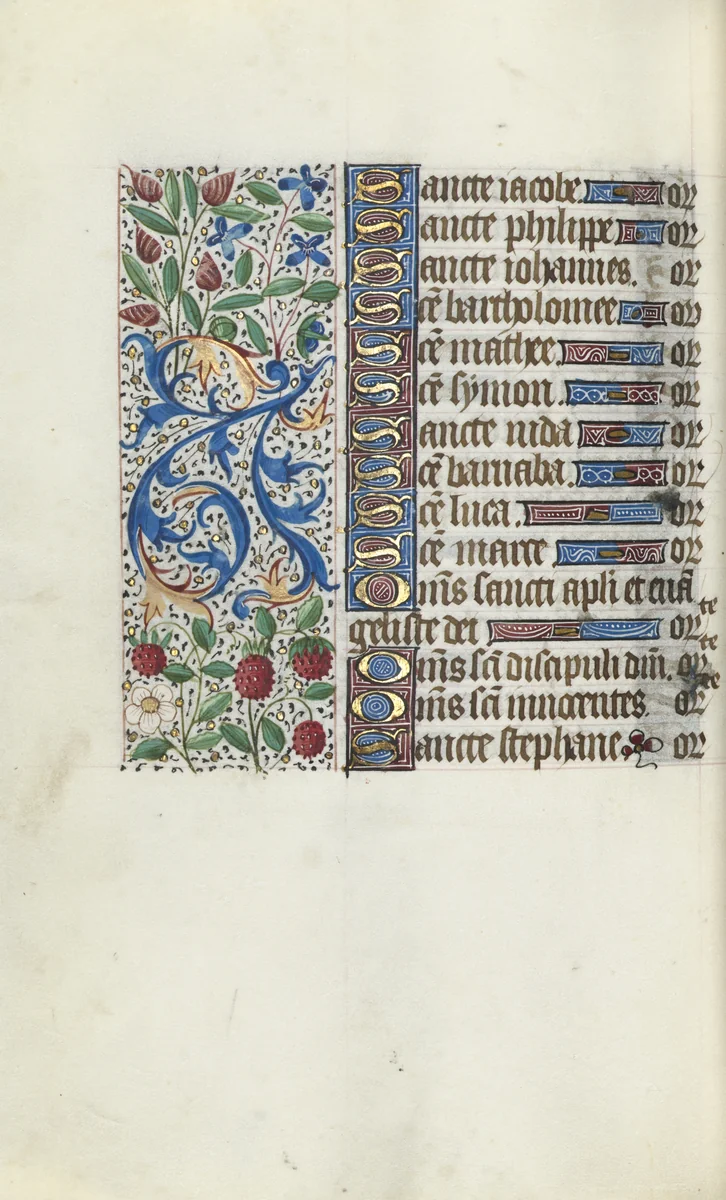 Sancte iacobe or
Sancte philippe or
Sancte iohannes. or
Sce bartholomee or
Sce mathee or
Sce symon. or
Sancte iuda or
Sce barnaba. or
Sce luca. or
Sce marce or
Oms sancti apli et eua
geliste dei or
te
Oms sci discipuli dni. or
te
Oms sci innocentes. or
te
Sancte stephane or